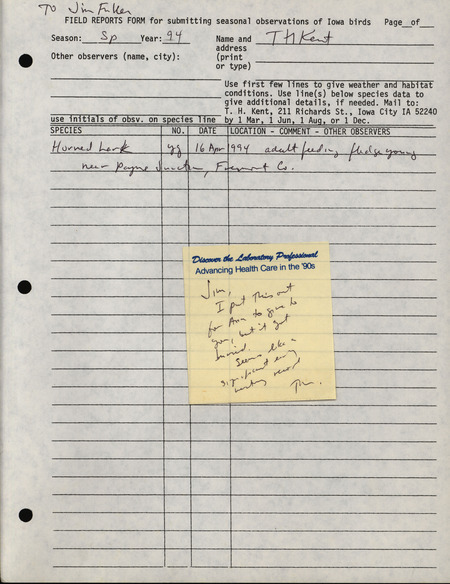 TO Jim Fuller
FIELD REPORTS FORM for submitting seasonal observations of Iowa birds Page__of__
Season: Sp Year: 94 Name and T H Kent
address
Other observers (name, city): (print
or type)
Use first few lines to give weather and habitat
conditions. Use line(s) below species data to
give additional details, if needed. Mail to:
T. H. Kent, 211 Richards St., Iowa City IA 52240
use initials of obsv. on species line by 1 Mar, 1 Jun, 1 Aug, or 1 Dec.
SPECIES NO. DATE LOCATION - COMMENT - OTHER OBSERVERS
Horned Lark yg 16 Apr 1994 adult feeding fledge young
near Payne Junction, Fremont Co.
Discover the Laboratory Professional
Advancing Health Care in the '90s
Jim,
I put this out
for Ann to give to
you, but it got
buried.
Seems like a
significant early
nesting record
Tom.